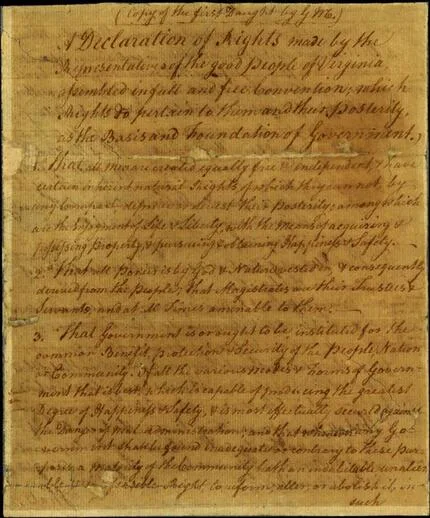 (Copy of the first Daught by G M.)
A Declaration of Rights made by the
Representatives of the good People of Virginia,
assembled in full and free Convention; which
Rights do pertain to them and their Posterity,
as the Basis and Foundation of Government.
1. That all men are created equally free & independent, & have
certain inherent natural Rights, of which they cannot, by
any Compact, deprive or divest their Posterity; among which
are the Enjoyment of Life & Liberty, with the Means of acquiring &
possessing Property, & pursueing & obtaining Happiness & Safety.
2. That all Power is by God & Nature vested in, & consequently
derived from the People; that Magistrates are their Trustees &
Servants, and at all Times amenable to them.
3. That Government is or ought to be instituted for the
common Benefit, protection & Security of the People, Nation
or Community. Of all the various modes & Forms of Govern-
ment that is best, which is capable of producing the greatest
Degree of Happiness & Safety, & is most effectually secured against
the Danger of mal administration; and that whenever any Go-
vernment shall be found inadequate or contrary to these pur-
poses, a majority of the Community hath an indubitable unalien-
able & indefeasible Right to reform, alter, or abolish it, in
such